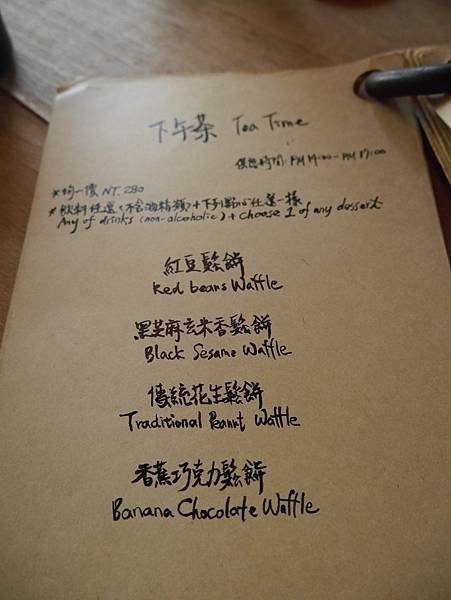 下午茶 Tea Time
優惠時間：PM 14:00 - PM 17:00
*均一價 NT. 280
*飲料任選(不含酒精類)+下列點心任選一樣
Any of drinks (non-alcoholic) + Choose 1 of any dessert
紅豆鬆餅
Red beans Waffle
黑芝麻玄米香鬆餅
Black Sesame Waffle
傳統花生鬆餅
Traditional Peanut Waffle
香蕉巧克力鬆餅
Banana Chocolate Waffle